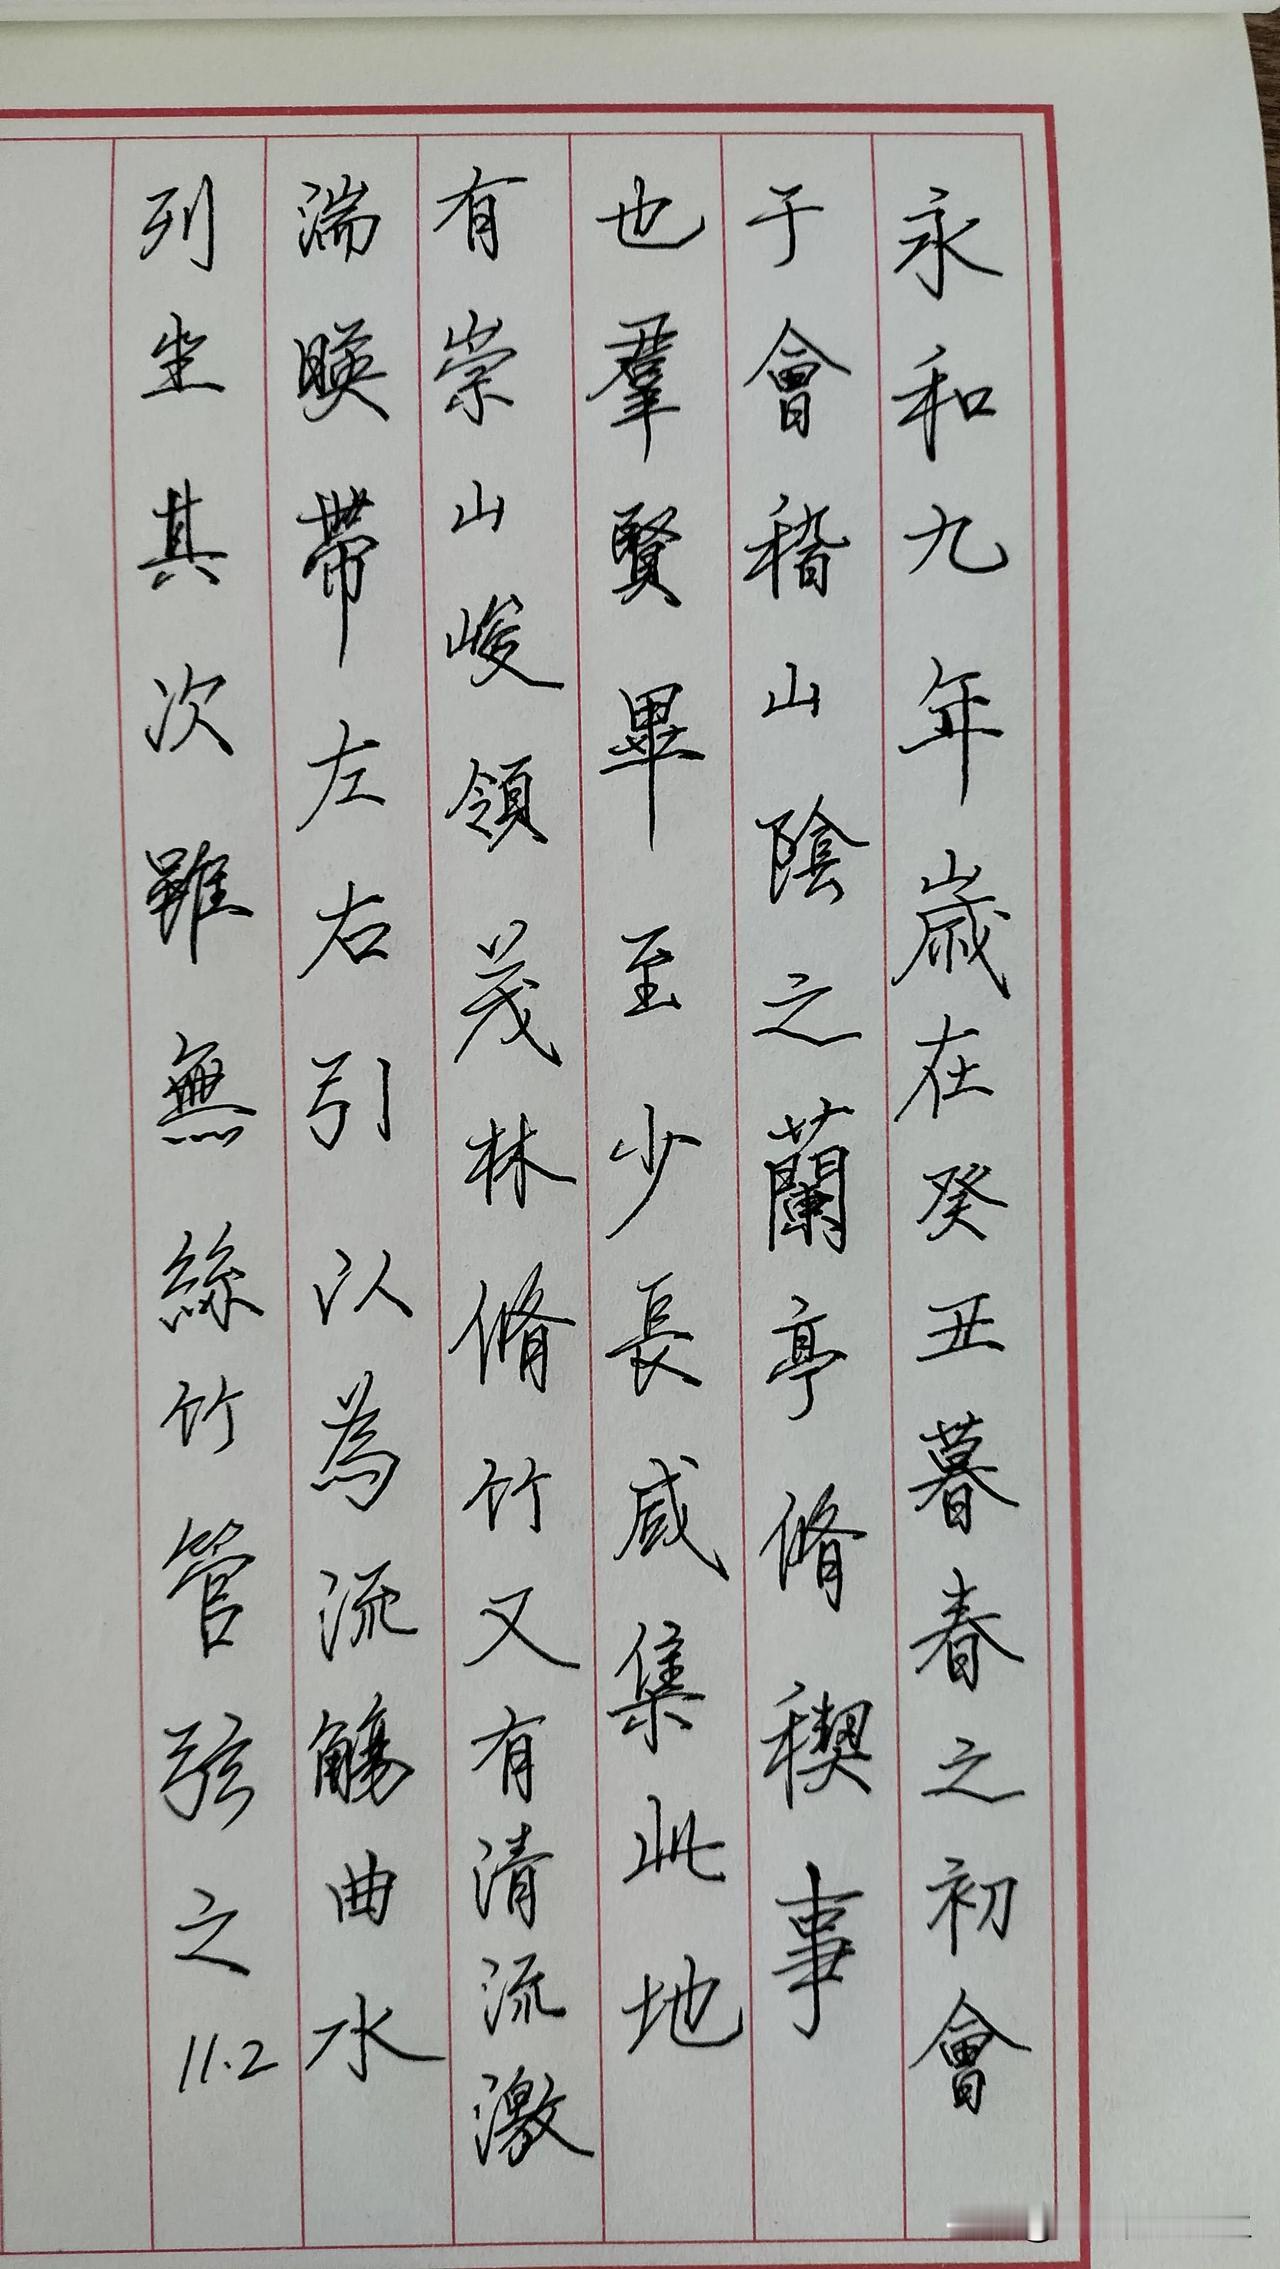 永和九年歲在癸丑暮春之初會
于會稽山陰之蘭亭脩稧事
也羣賢畢至少長咸集此地
有崇山峻領茂林脩竹又有清流激
湍暎帶左右引以為流觴曲水
列坐其次雖無絲竹管弦之
11.2